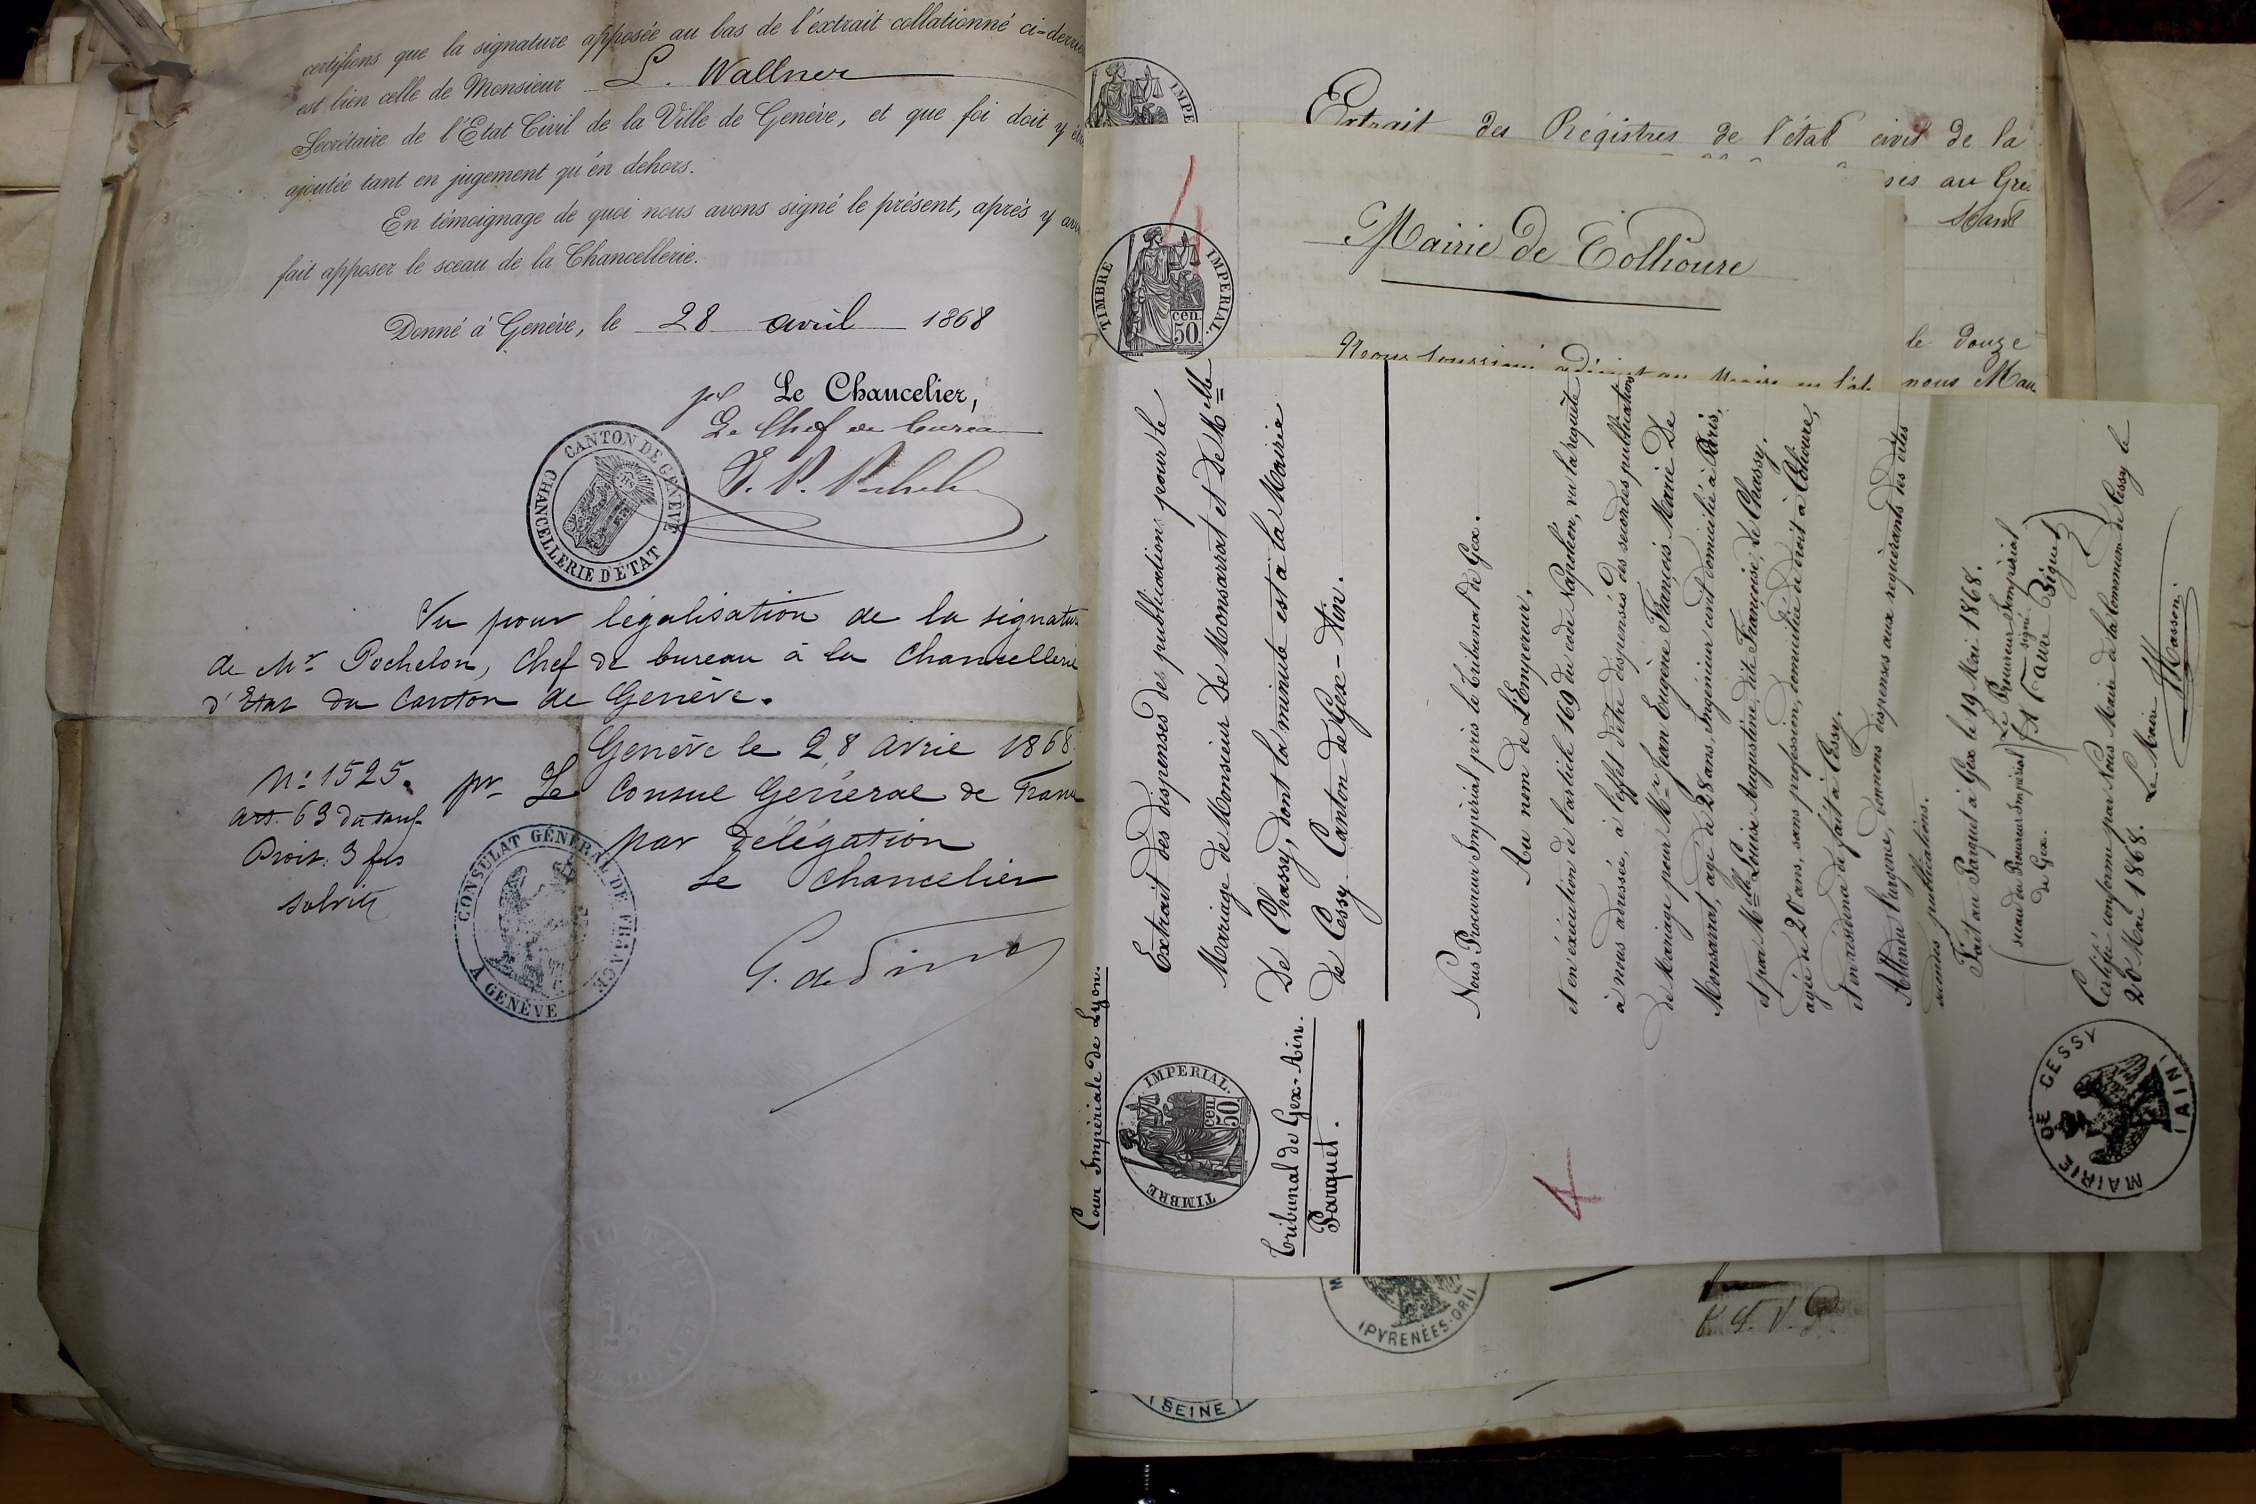 certifions que la signature apposée au bas de l'éxtrait collationné ci-derriè
est bien celle de Monsieur L. Wallner
Secrétaire de l'Etat Civil de la Ville de Genève, et que foi doit y êt
ajoutée tant en jugement qu'en dehors.
En témoignage de quoi nous avons signé le présent, après y avoi
fait apposer le sceau de la Chancellerie.
Donné à Genève, le 28 avril 1868
Le Chancelier,
Le Chef de bureau
CANTON DE GENEVE
CHANCELLERIE D'ETAT
Vu pour légalisation de la signatu
de Mr Pochelon, Chef de bureau à la Chancellerie
d'Etat du Canton de Genève.
Genève le 28 avril 1868
No 1525. pr Le Consul Général de Fran
Art. 63 du tarif
par délégation
Droit: 3 frs
Le Chancelier
CONSULAT GÉNÉRAL DE FRANCE
A GENÈVE
Extrait des Régistres de l'état civil de la
ses au Gre
TIMBRE IMPERIAL.
cen. 50.
Mairie de Collioure
le douze
nous
Cour Impériale de Lyon.
TIMBRE IMPERIAL.
cen 50.
Tribunal de Gex-Ain.
Parquet.
Extrait des dispenses des publications pour le
Mariage de Monsieur De Monsarrat et de Melle
De Chassy, dont la minute est à la Mairie
de Cessy. Canton de Gex-Ain.
Nous Procureur Impérial près le Tribunal de Gex.
Au nom de L'Empereur,
et en éxécution de l'article 169 du code Napoléon, vu la requête
à nous adressée, à l'effet d'être dispensés des secondes publications
de Mariage pour Mr Jean Eugène François Marie De
Monsarrat, âgé de 28 ans, Ingénieur civil domicilié à Paris,
et par Melle Louise Augustine, dite Francoise, de Chassy.
agée de 20 ans, sans profession, domiciliée de droit à Colioure,
et en résidence de fait à Cessy.
Attendu l'urgence, donnons dispenses aux requérants des dites
secondes publications.
Fait au Parquet à Gex le 19 Mai 1868.
(sceau du Procureur Impérial
de Gex.
Le Procureur Impérial
signé:
Certifié conforme par Nous Maire de la Commune de Cessy le
20 Mai 1868. Le Maire
Masson
MAIRIE DE CESSY
(AIN)
4
(PYRENÉES-OR
(SEINE)